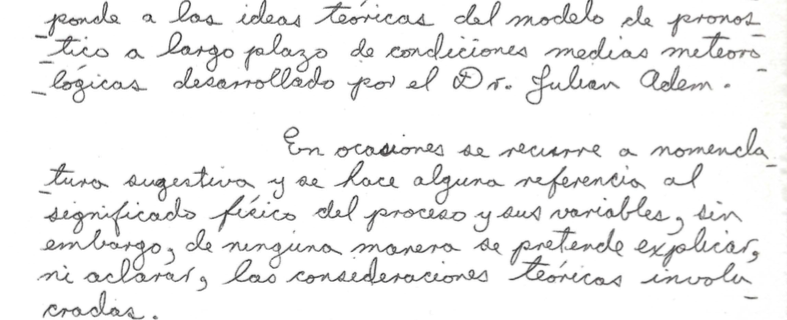 _ponde a las ideas teóricas del modelo de pronos_
_tico a largo plazo de condiciones medias meteoro_
_lógicas desarrollado por el Dr. Julian Adem.
En ocasiones se recurre a nomencla_
_tura sugestiva y se hace alguna referencia al
significado físico del proceso y sus variables, sin
embargo, de ninguna manera se pretende explicar,
ni aclarar, las consideraciones teóricas involu_
cradas.